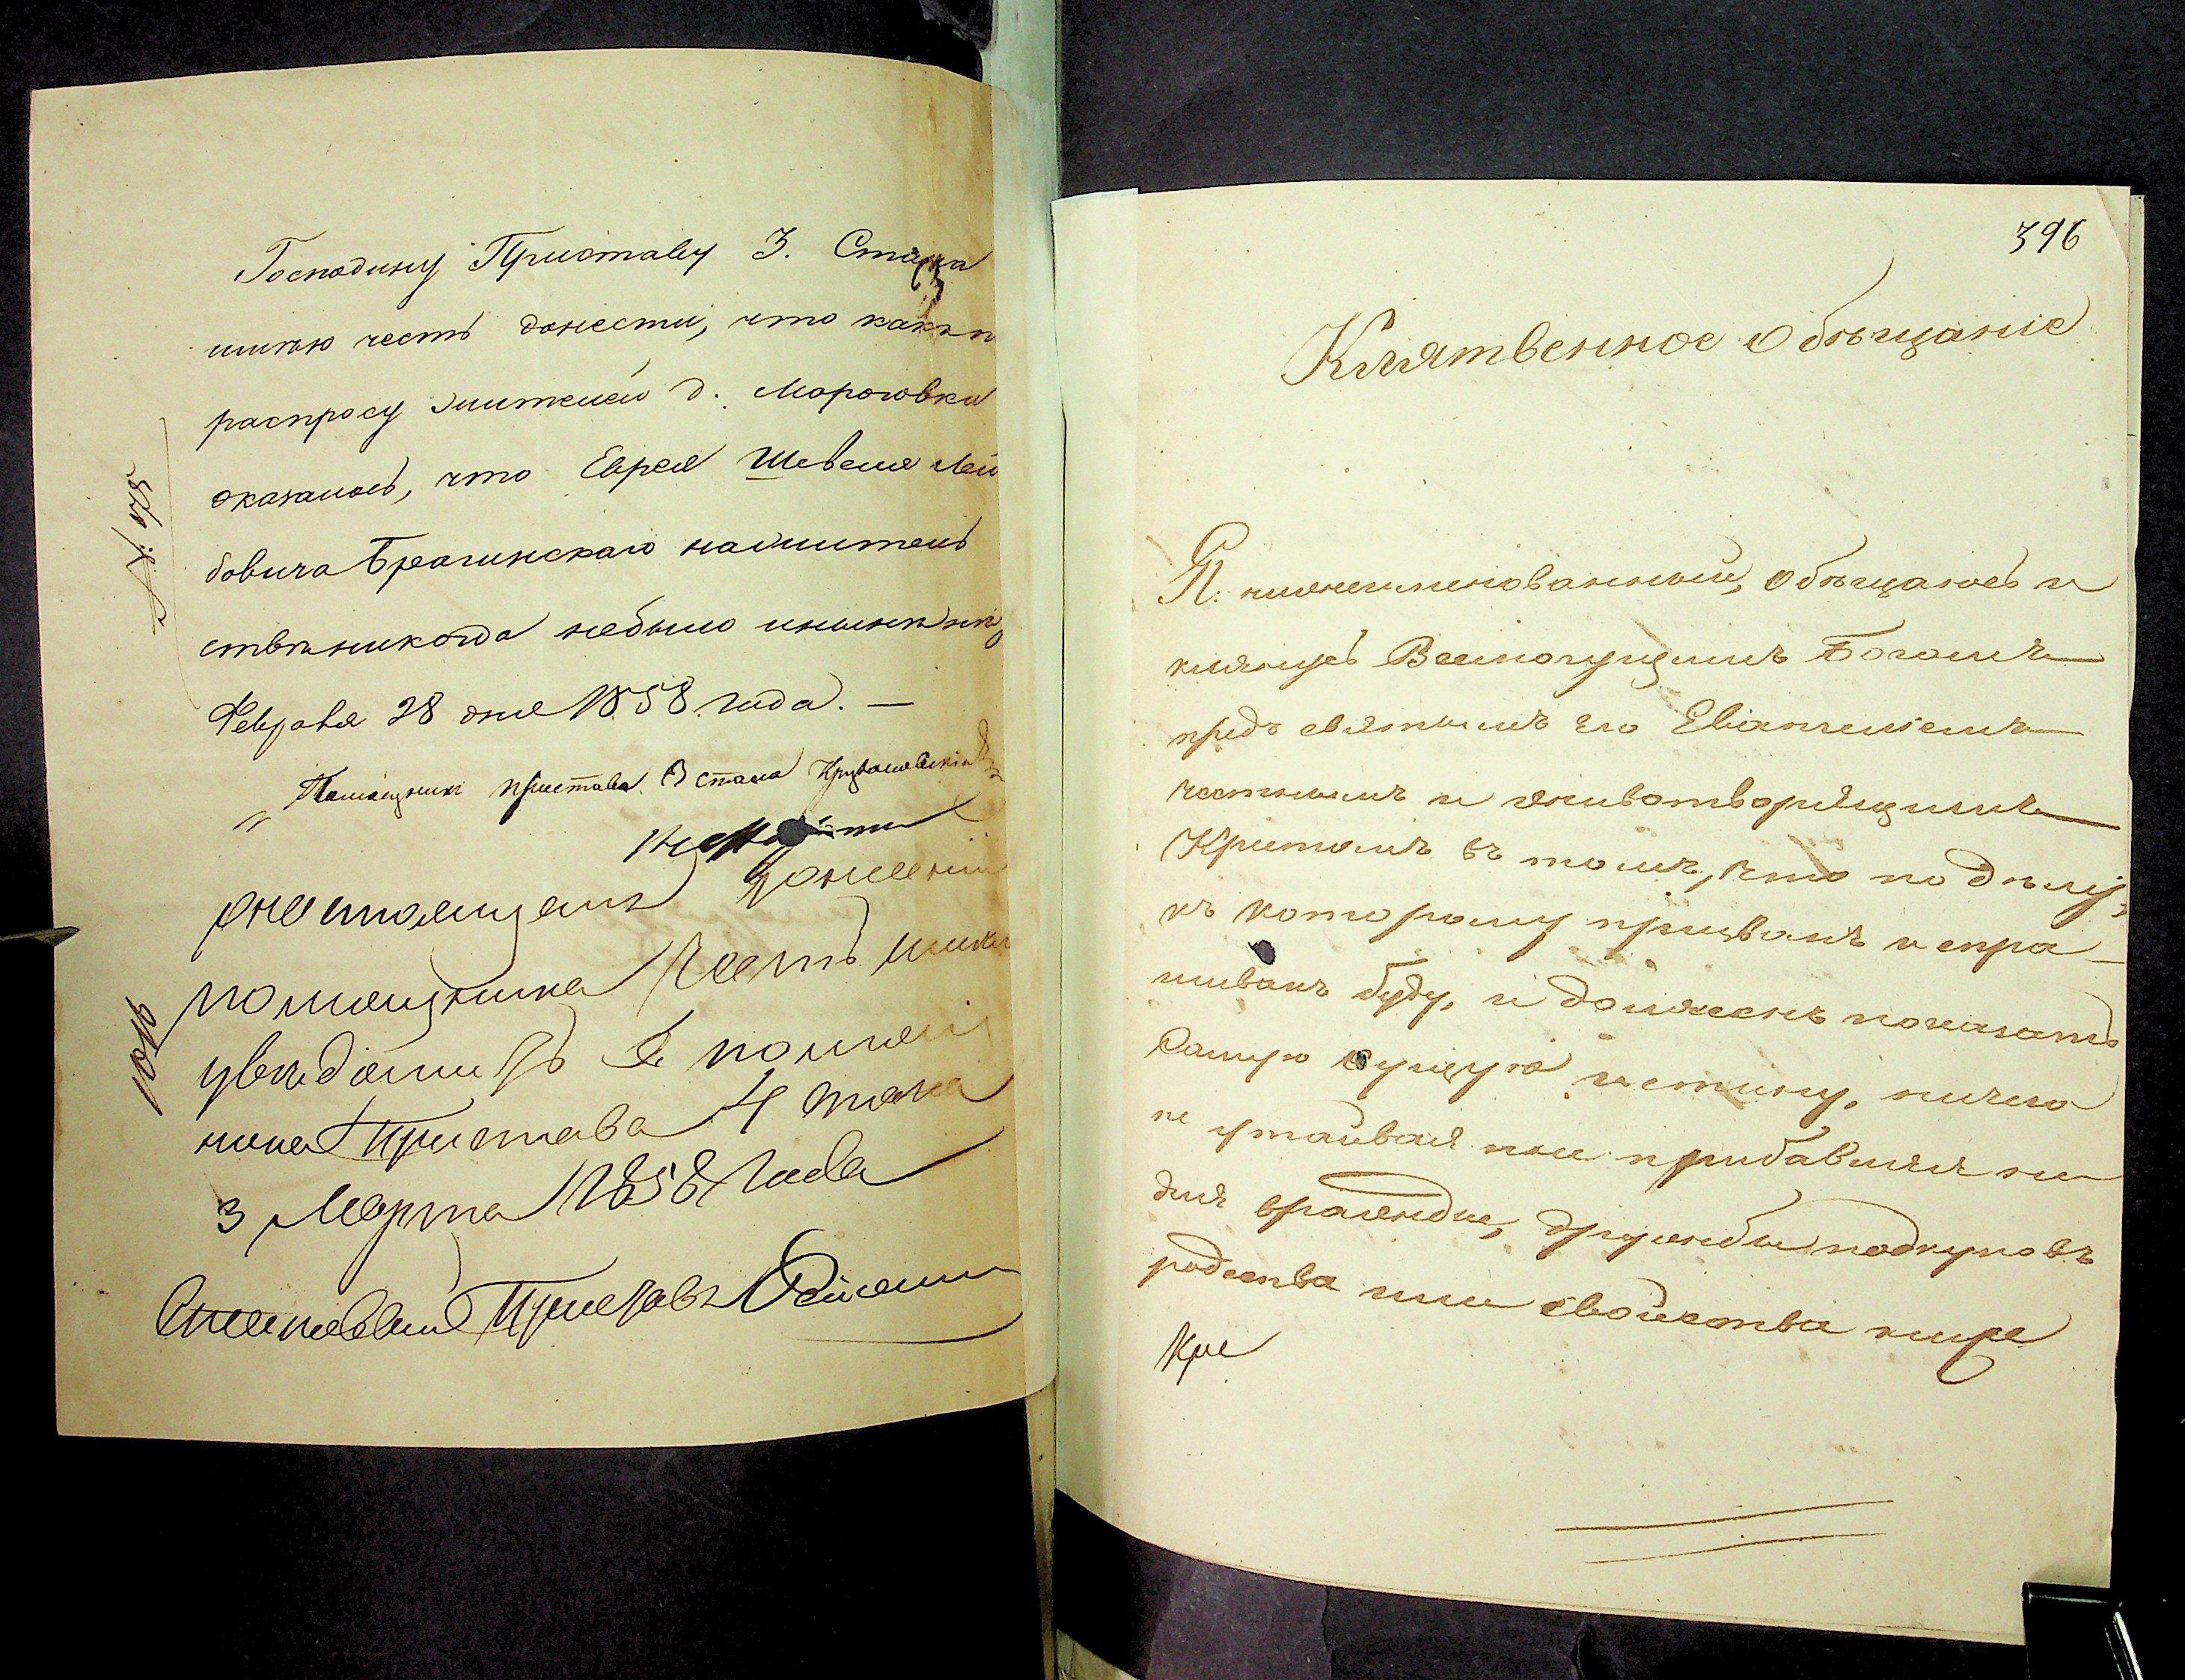 Господину Приставу 3. Стана
имѣю честь донести, что какъ п
распросу жителей д. Морозовки
оказалось, что Еврея Шевеля Лей
бовича Брагинскаго на жительс
ствѣ никогда небыло и нынѣ нѣ
Февраля 28 дня 1858 года. —
Помощник пристава 3 стана
№ 375
О настоящемъ донесеніи
помощника честь имѣю
увѣдомить Г. помощ
ника Пристава 4 стана
3 Марта 1858 года
Становой Приставъ
1016
396
Клятвенное обѣщаніе
Я. нижеименованный, обѣщаюсь и
клянусь Всемогущимъ Богомъ
предъ святымъ его Евангеліемъ
честнымъ и животворящимъ
Крестомъ въ томъ, что по дѣлу,
къ которому призванъ и спра-
шиванъ буду, и долженъ показать
самую сущую истину, ничего
не утаивая и не прибавляя ни
для вражды, дружбы подкуповъ
родства или свойства ниже
Кре